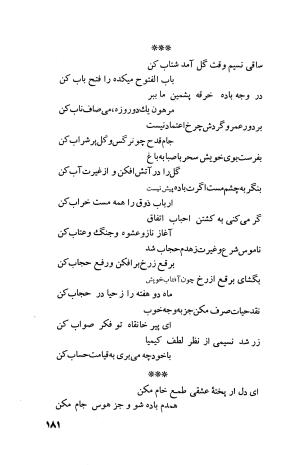 ***
ساقی نسیم وقت گل آمد شتاب کن
باب الفتوح میکده را فتح باب کن
در وجه باده خرقه پشمین ما ببر
مرهون یك دوروزه، می صاف ناب کن
بردور عمر و گردش چرخ اعتماد نیست
جام قدح چو نرگس و گل پر شراب کن
بفرست بوی خویش سحر با صبا به باغ
گل را در آتش افکن و از غیرت آب کن
بنگر به چشم مست اگرت باده پیش نیست
ارباب ذوق را همه مست خراب کن
گر می کنی به کشتن احباب اتفاق
آغاز ناز و عشوه و جنگ و عتاب کن
ناموس شرع و غیرت زهدم حجاب شد
برقع ز رخ بر افکن و رفع حجاب کن
بگشای برقع از رخ چون آفتاب خویش
ماه دو هفته را ز حیا در حجاب کن
نقد حیات صرف مکن جز به وجه خوب
ای پیر خانقاه تو فکر صواب کن
زر شد نسیمی از نظر لطف کیمیا
با خود چه می بری به قیامت حساب کن
***
ای دل ار پختهٔ عشقی طمع خام مکن
همدم باده شو و جز هوس جام مکن
۱۸۱